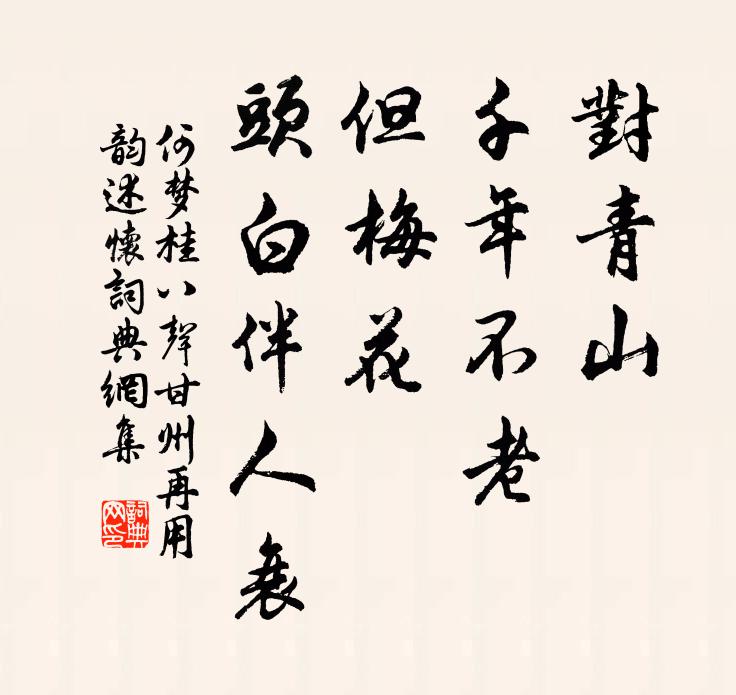 對青山
千年不老
但梅花
頭白伴人衰
何梦桂八聲甘州再用
韵述懷詞典網集
詞典
网印